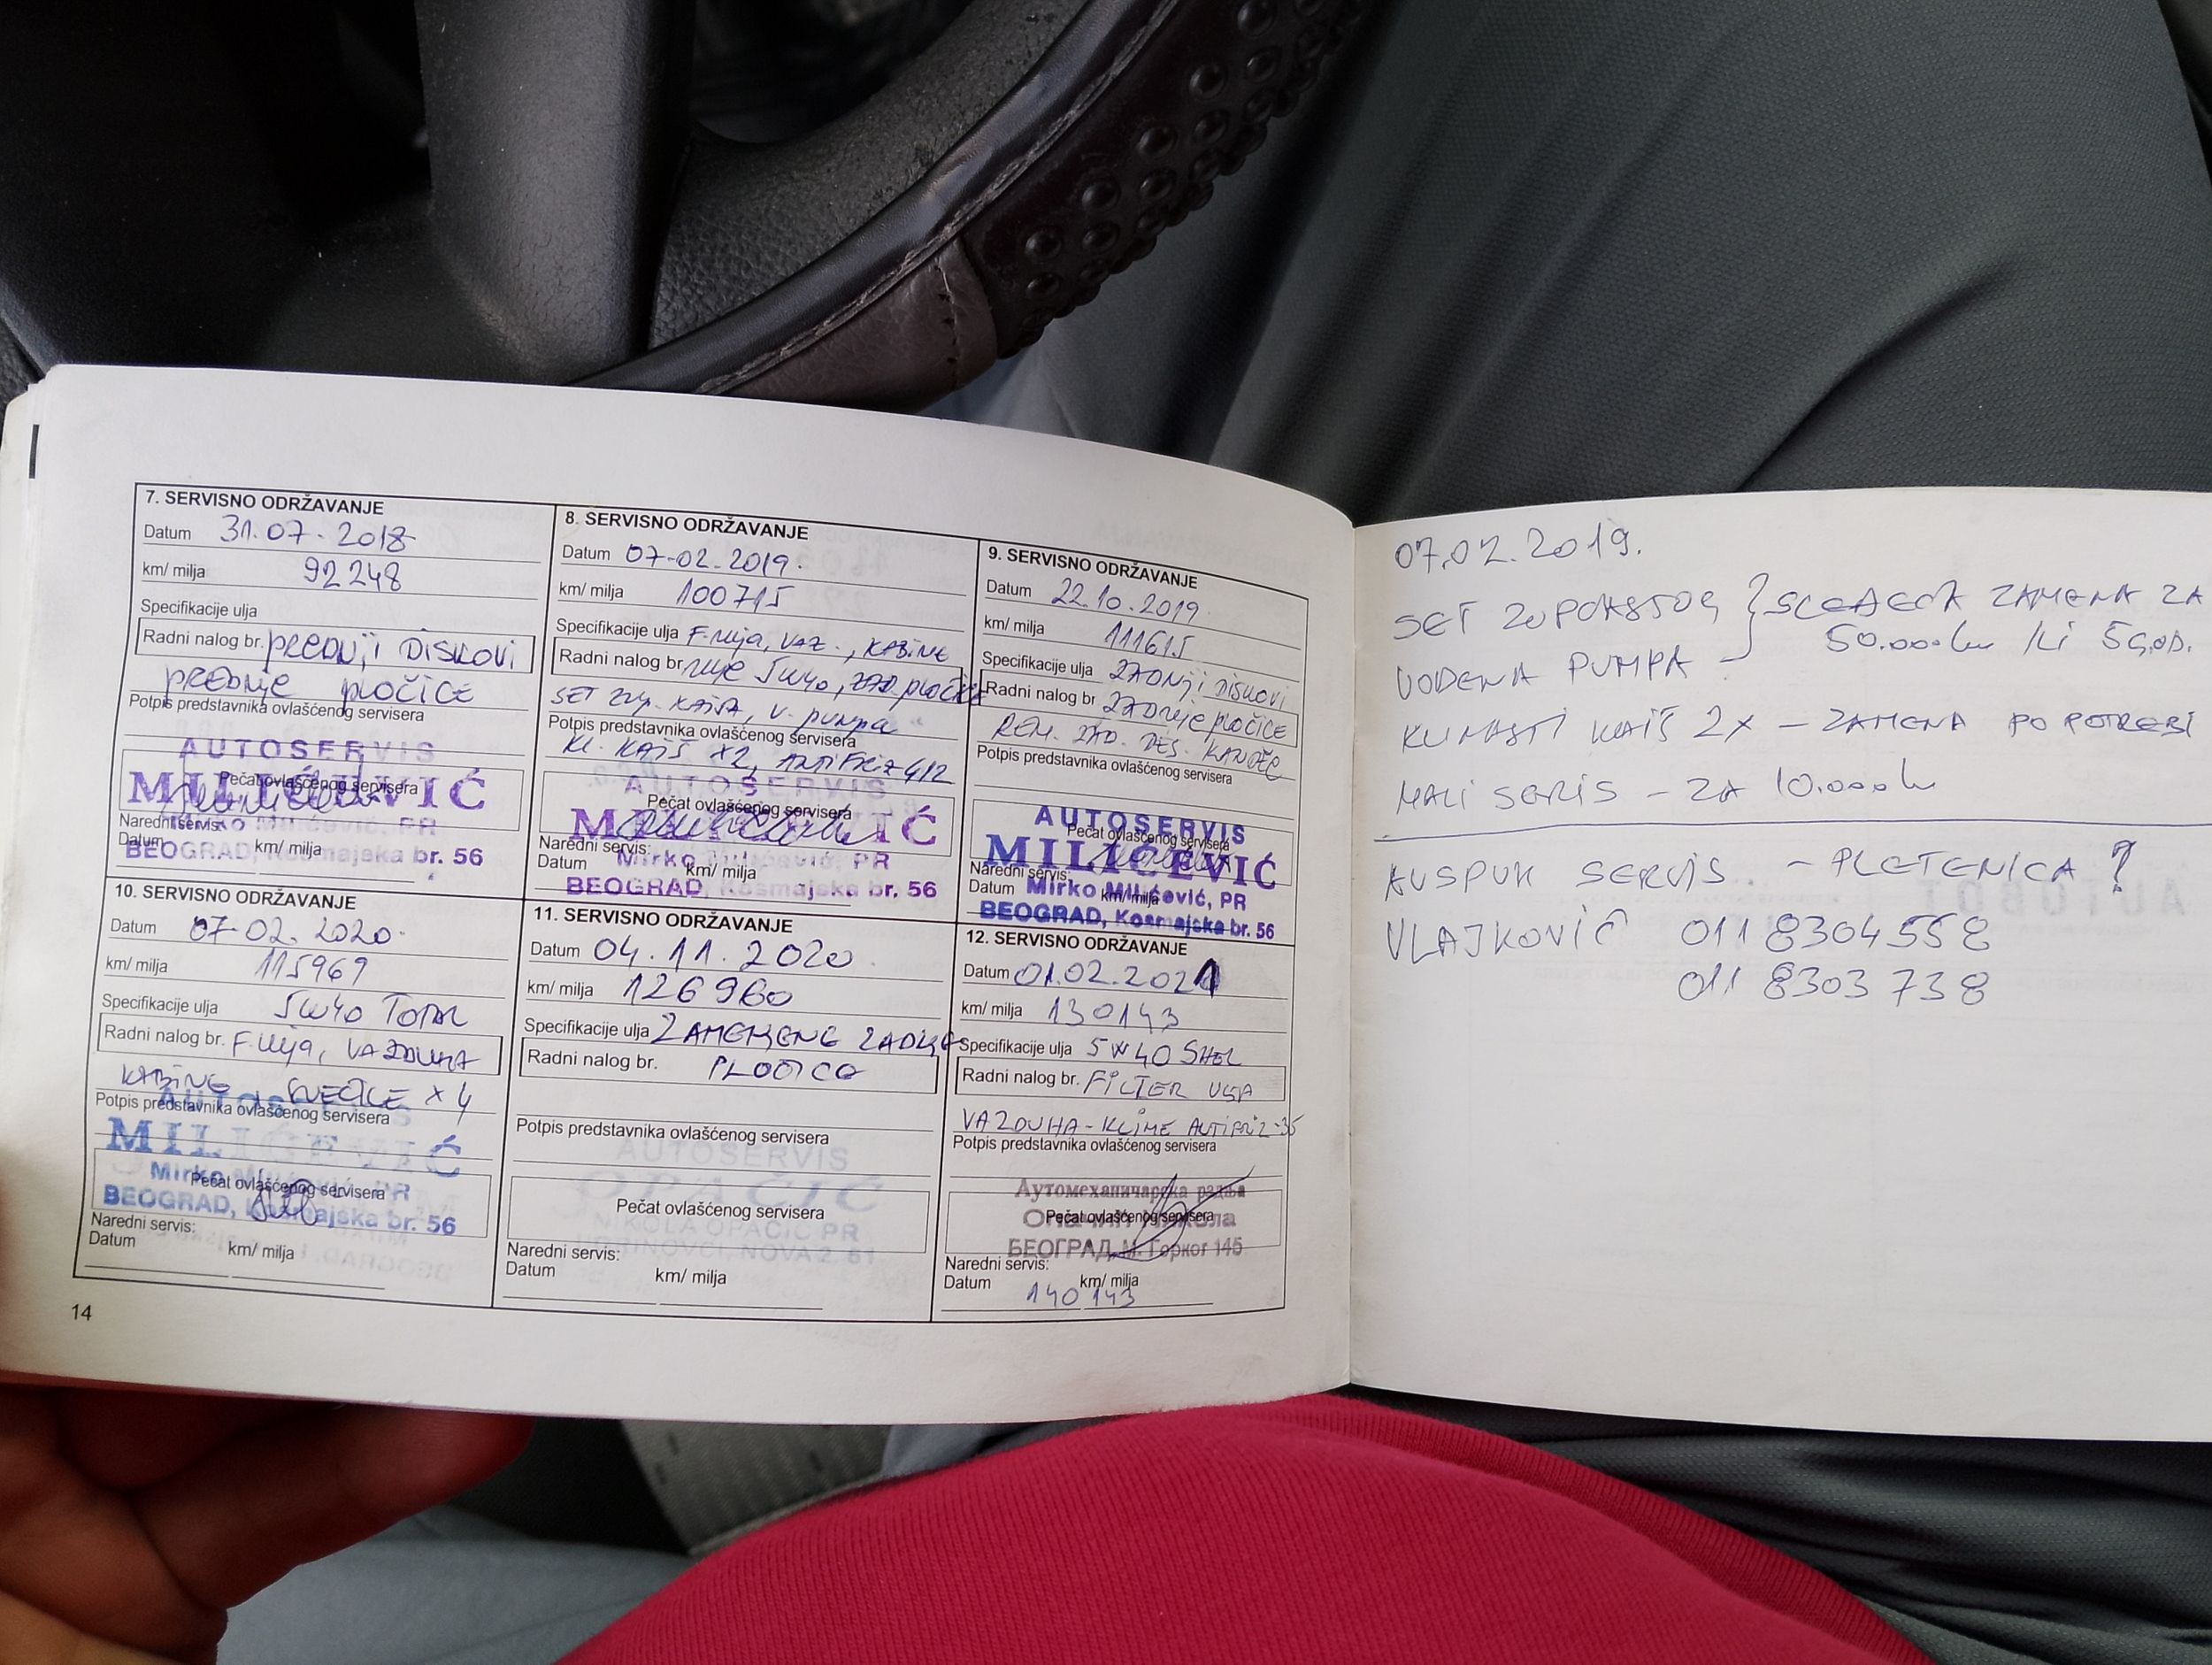 7. SERVISNO ODRŽAVANJE
Datum 31.07.2018
km/ milja 92248
Specifikacije ulja
Radni nalog br. PREDNJI DISKOVI
PREDNJE PLOČICE
Potpis predstavnika ovlašćenog servisera
AUTOSERVIS
MILIĆEVIĆ
Pečat ovlašćenog servisera
Mirko Milićević, PR
Naredni servis:
Datum km/ milja
BEOGRAD, Kosmajska br. 56
8. SERVISNO ODRŽAVANJE
Datum 07-02.2019.
km/ milja 100715
Specifikacije ulja F. ulja, VAZ., KABINE
Radni nalog br. ulje 5W40, ZAD. PLOČICE
SET ZUP. KAIŠA, V. PUMPA
Potpis predstavnika ovlašćenog servisera
KL. KAIŠ X2, ANTIFRIZ G12
AUTOSERVIS
Pečat ovlašćenog servisera
MILIĆEVIĆ
Naredni servis:
Mirko Milićević, PR
Datum km/ milja
BEOGRAD, Kosmajska br. 56
9. SERVISNO ODRŽAVANJE
Datum 22.10.2019.
km/ milja 111615
Specifikacije ulja ZADNJI DISKOVI
Radni nalog br. ZADNJE PLOČICE
REM. ZAD. DES.
Potpis predstavnika ovlašćenog servisera
AUTOSERVIS
Pečat ovlašćenog servisera
MILIĆEVIĆ
Naredni servis:
Datum km/ milja
Mirko Milićević, PR
BEOGRAD, Kosmajska br. 56
10. SERVISNO ODRŽAVANJE
Datum 07-02.2020.
km/ milja 115969
Specifikacije ulja 5W40 TOTAL
Radni nalog br. F. ulja, VAZDUHA
KABINE SVEĆICE X 4
Potpis predstavnika ovlašćenog servisera
AUTOSERVIS
MILIĆEVIĆ
Mirko Milićević, PR
Pečat ovlašćenog servisera
BEOGRAD, Kosmajska br. 56
Naredni servis:
Datum km/ milja
11. SERVISNO ODRŽAVANJE
Datum 04.11.2020.
km/ milja 126960
Specifikacije ulja ZAMENJENE ZADNJE
Radni nalog br. PLOČICE
Potpis predstavnika ovlašćenog servisera
AUTOSERVIS
OPAČIĆ
Pečat ovlašćenog servisera
NIKOLA OPAČIĆ PR
Naredni servis:
Datum km/ milja
12. SERVISNO ODRŽAVANJE
Datum 01.02.2021
km/ milja 130143
Specifikacije ulja 5W40 SHEL
Radni nalog br. FILTER ULJA
VAZDUHA-KLIME ANTIFRIZ-35
Potpis predstavnika ovlašćenog servisera
Аутомеханичарска радња
Pečat ovlašćenog servisera
Опачић Никола
БЕОГРАД, М. Горког 145
Naredni servis:
Datum km/ milja
140 143
14
07.02.2019.
SET ZUPČASTOG } SLEDEĆA ZAMENA ZA
50.000km ILI 5 GOD.
VODENA PUMPA -
KLINASTI KAIŠ 2X - ZAMENA PO POTREBI
MALI SERVIS - ZA 10.000km
AUSPUH SERVIS - PLETENICA ?
VLAJKOVIĆ 011 8304558
011 8303 738